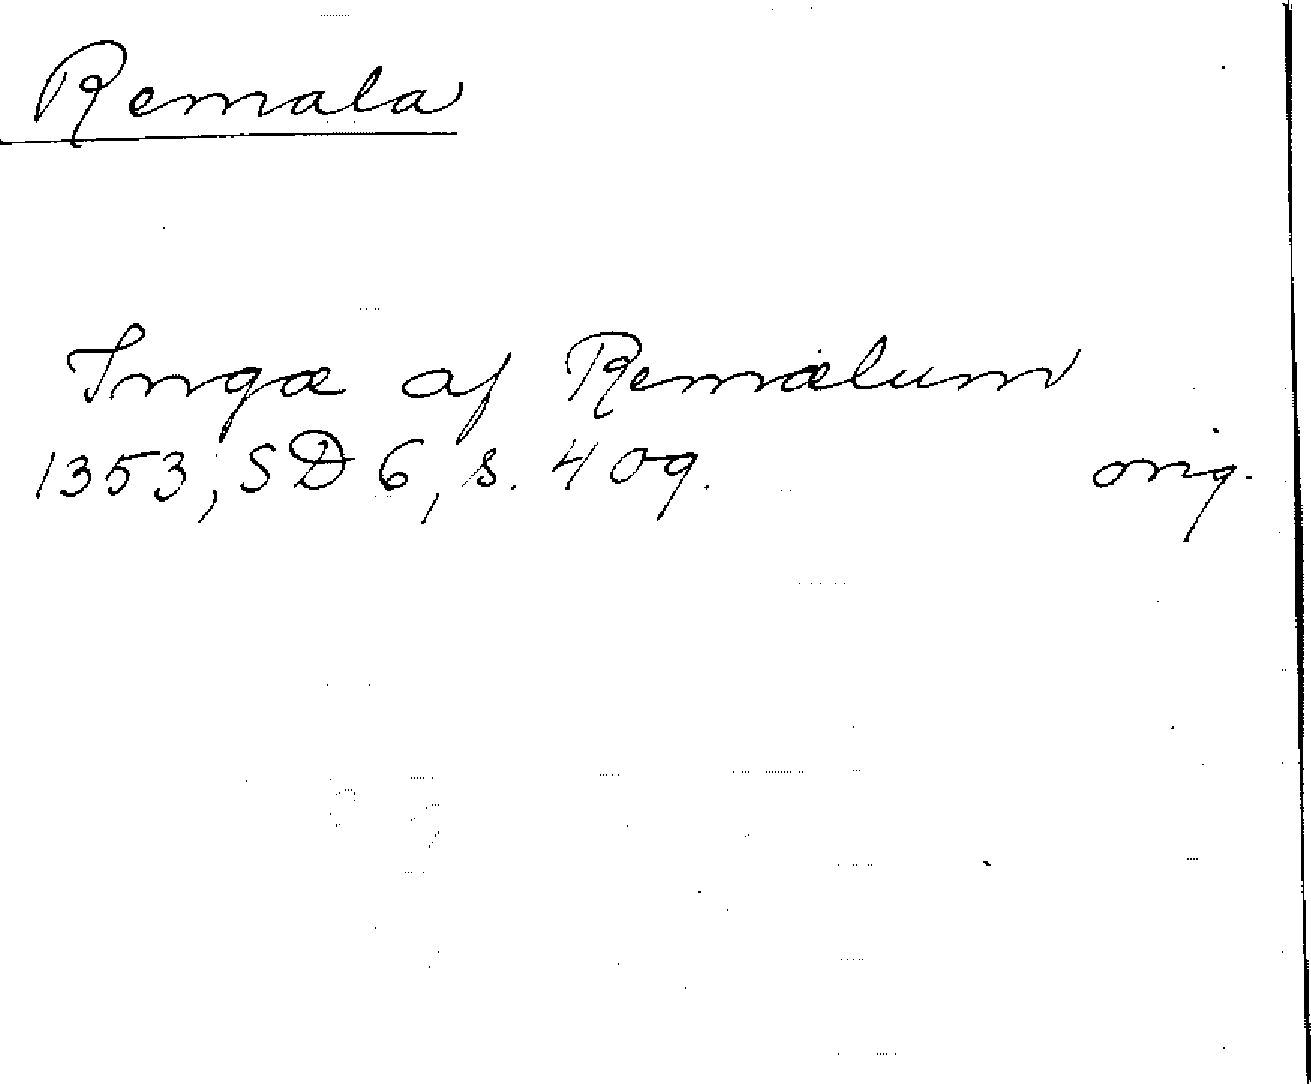 Remala
Ingæ af Remælum
1353, SD 6, s. 409. orig.